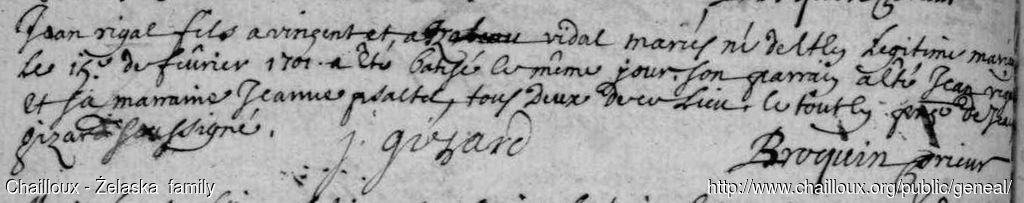 Jean rigal fils a vincent et, a vidal mariés né de leg legitime mariage
Le 15e. de feûvrier 1701. a eté batisé le même jour. son parrain a eté Jean rigal
et sa marraine Jeanne psalte, tous deux de ce lieu. le tout en prnce de Jean
gizard soussigné.
j. gizard
Broquin prieur
Chailloux - Żelaska family
http://www.chailloux.org/public/geneal/